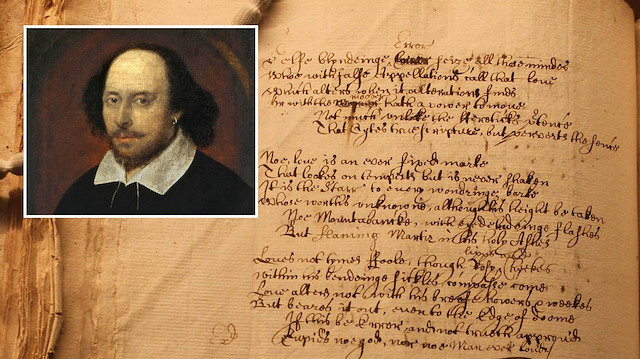 Selfe blyndeinge Error seize all those mindes
Whoe with false Appellations call that loue
Which alters when it alterations finds
Or with the mouer hath a power to moue
Not much unlike the Heretick's
That Cytes true Scripture, but peruerts the sence
Noe, loue is an euer fixed marke
That lookes on tempests but is neuer shaken
It is the Starr to euery wandringe barke
Whose worth's unknowne although his height be taken
Noe Mountabancke with eye-deludeinge flashes
But flameing Martir in his holy Ashes
Loue's not tymes Foole, though Rosy lippes & cheekes
within his bendinge Sickles compasse come
Loue alters not with his breife howers & weekes
But beares it out, euen to the Edge of doome
If this be Error and not truth approu'd
Cupids noe god, nor noe Man euer lou'd